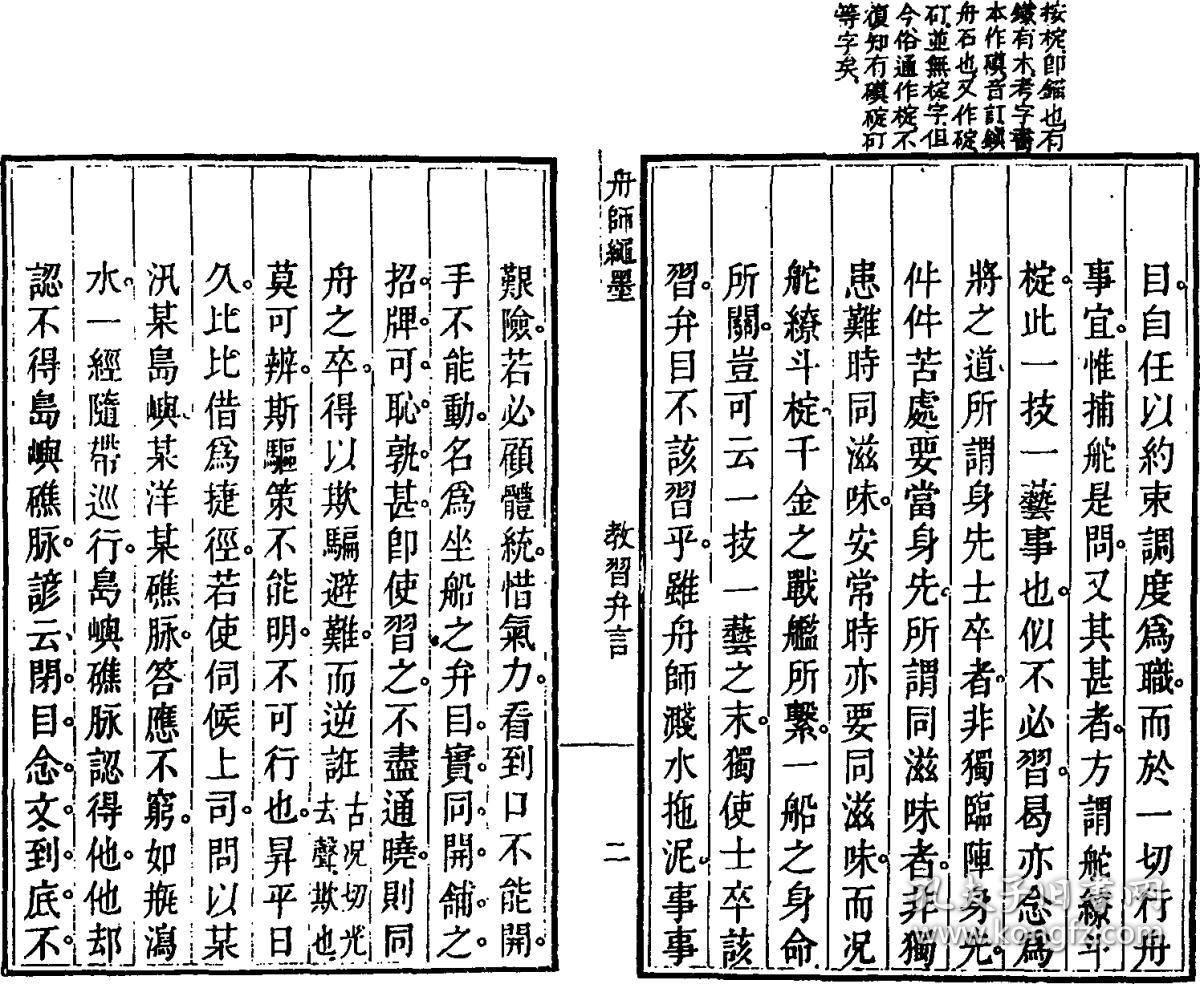 按椗卽錨也有
鐵有木考字書
本作磸音訂鎮
舟石也又作碇
矴並無椗字但
今俗通作椗不
復知有磸碇矴
等字矣
目自任以約束調度爲職。而於一切行舟
事宜。惟捕舵是問。又其甚者。方謂舵繚斗
椗。此一技一藝事也。似不必習。曷亦念爲
將之道所謂身先士卒者。非獨臨陣身先。
件件苦處要當身先。所謂同滋味者。非獨
患難時同滋味。安常時亦要同滋味。而况
舵繚斗椗千金之戰艦所繫。一船之身命
所關。豈可云一技一藝之末。獨使士卒該
習。弁目不該習乎。雖舟師濺水拖泥。事事
舟師繩墨
教習弁言
二
艱險。若必顧體統。惜氣力。看到口不能開。
手不能動。名爲坐船之弁目。實同開舖之
招牌。可恥孰甚。卽使習之。不盡通曉。則同
舟之卒。得以欺騙避難。而逆誑古况切光去聲欺也
莫可辨。斯驅策不能明。不可行也。昇平日
久。比比借爲捷徑。若使伺候上司。問以某
汛某島嶼某洋某礁脉。答應不窮。如瓶瀉
水。一經隨帶巡行。島嶼礁脉認得他。他却
認不得島嶼礁脉。諺云閉目念文到底不
孔夫子旧书网
www.kongfz.com